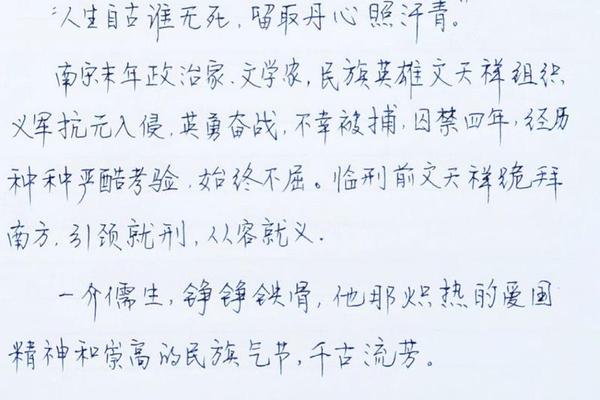 “人生自古谁无死，留取丹心照汗青。”
南宋末年政治家、文学家，民族英雄文天祥组织
义军抗元入侵，英勇奋战，不幸被捕，囚禁四年，经历
种种严酷考验，始终不屈。临刑前文天祥跪拜
南方，引颈就刑，从容就义.
一介儒生，铮铮铁骨，他那炽热的爱国
精神和崇高的民族气节，千古流芳。